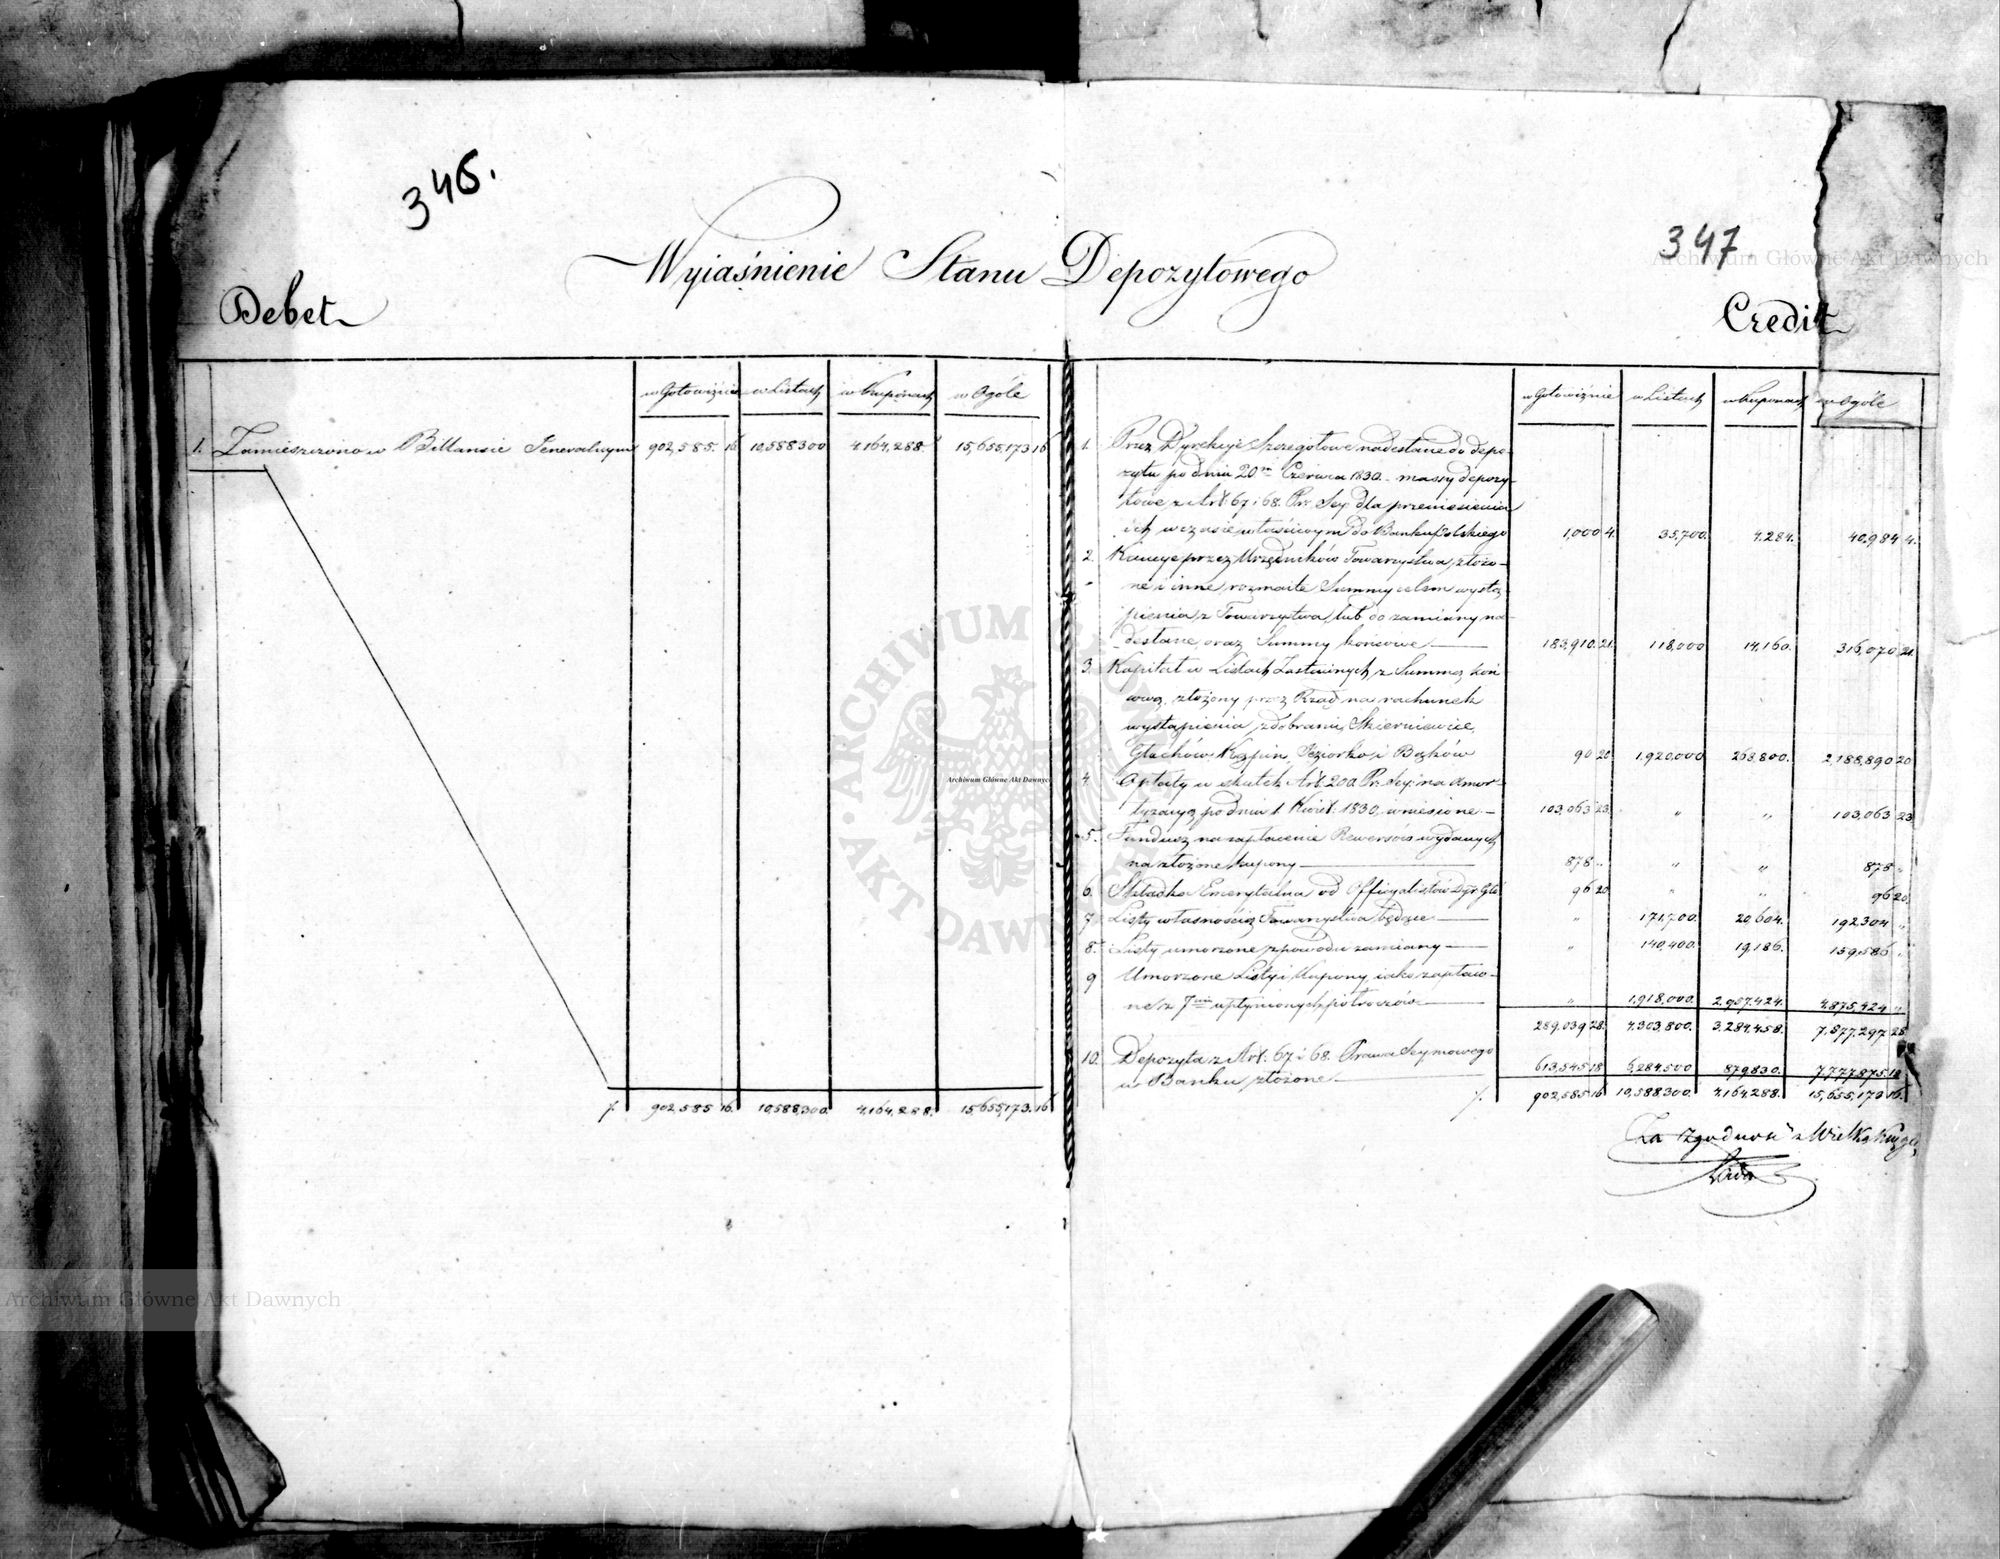 346.
347
Wyiaśnienie Stanu Depozytowego
Debet
Credit
w Gotowiźnie w Listach w Kuponach w Ogóle
1. Zamieszczono w Billansie Generalnym 902,585. 16 10,588300 4,164,288. 15,655,173 16
7. 902,585 16. 10,588,300. 4,164,288. 15,655,173. 16
w Gotowiźnie w Listach w Kuponach w Ogóle
1. Przez Dyrekcye Szczegółowe nadesłane do depo-
zytu po dniu 20m Czerwca 1830. massy depozy-
towe z Art: 67 i 68. Pr: Sey: dla przeniesienia
ich w czasie właściwym do Banku Polskiego 1,000 4. 35,700. 4,284. 40,984 4.
2. Kaucye przez Urzędników Towarzystwa złożo-
ne i inne rozmaite Summy celem wystą-
pienia z Towarzystwa lub do zamiany na-
desłane, oraz Summy końcowe 183,910. 21. 118,000 14,160. 316,070 21.
3. Kapitał w Listach Zastawnych z Summą koń-
cową, złożony przez Rząd na rachunek
wystąpienia z dobrami Skierniewice,
Głuchów, Jeziorko i 90 20 1,920,000 268,800. 2,188,890 20
4. Opłaty w skutek Art: 200. Pr: Sey: na Amor-
tyzacyą po dniu 1 1830. wniesione 103,063 23. " " 103,063 23
5. Fundusz na zapłacenie Rewersów wydanych
na złożone kupony 878 " " " 878 "
6. Składka Emerytalna od Officyalistów Dyr: Głł: 96 20 " " 96 20.
7. Listy własnością Towarzystwa będące " 171,700. 20,604. 192,304 "
8. Listy umorzone z powodu zamiany " 140,400. 19,186. 159,586 "
9 Umorzone Listy i Kupony iako zapłaco-
ne z 7miu upłynionych półroczów " 1,918,000. 2,957,424. 4,875,424 "
289,039 28. 4,303,800. 3,284,458. 7,877,297 28
10. Depozyta z Art: 67 i 68. Prawa Seymowego
w Banku złożone 613,545 18 6,284,500 879,830. 7,777,875 18
7. 902,585 16 10,588,300. 4,164,288. 15,655,173 16.
Za zgodność z Wielką Xięgą
Archiwum Główne Akt Dawnych
Archiwum Główne Akt Dawnych
Archiwum Główne Akt Dawnych
ARCHIWUM GŁÓWNE AKT DAWNYCH